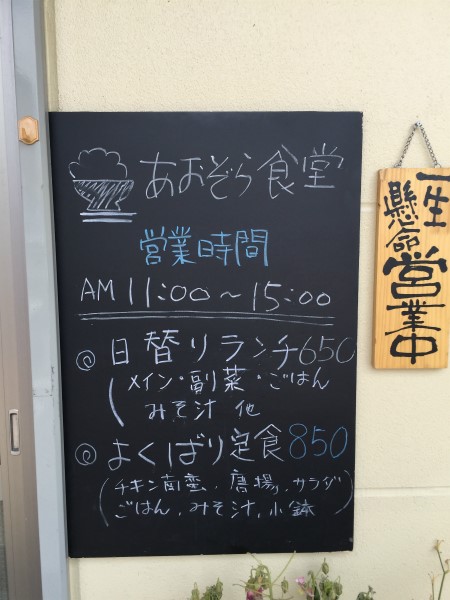 あおぞら食堂
営業時間
AM 11:00~15:00
◎日替りランチ650
(メイン・副菜・ごはん
みそ汁 他
◎よくばり定食850
(チキン南蛮、唐揚、サラダ
ごはん、みそ汁、小鉢)
一生
懸命
営業中